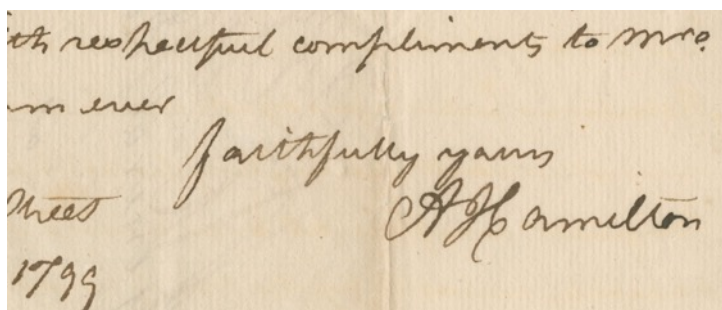 ith respectful compliments to Mrs.
m ever
faithfully yours
Street
A Hamilton
1799